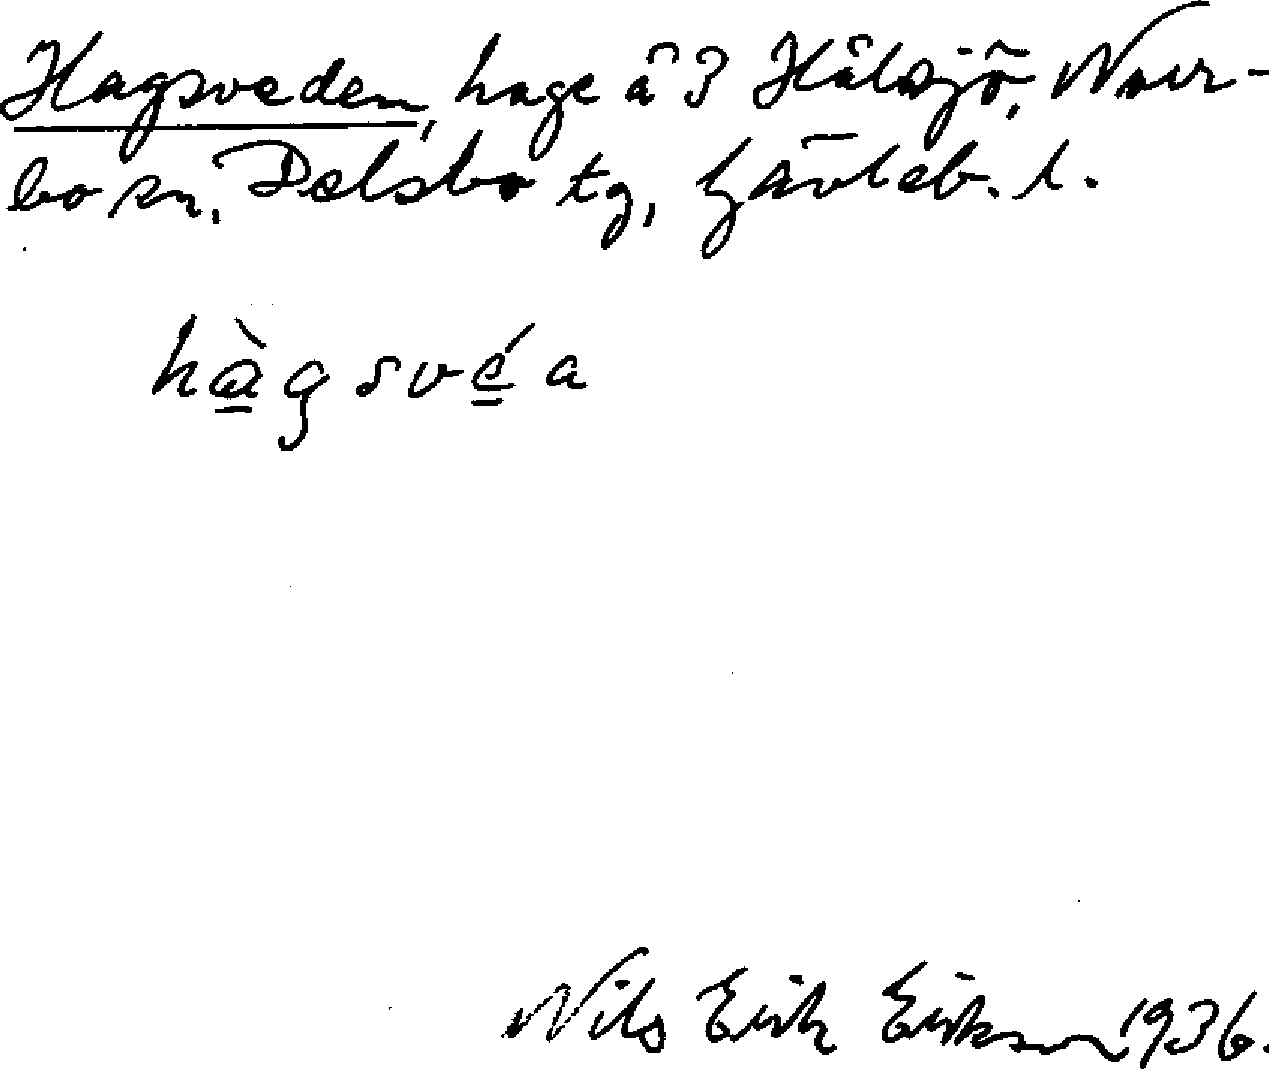 Hagsveden, hage å 3 Hålsjö, Norr-
bo sn, Delsbo tg, Gävleb. l.
hàgsvéa
Nils Erik Erikson 1936.